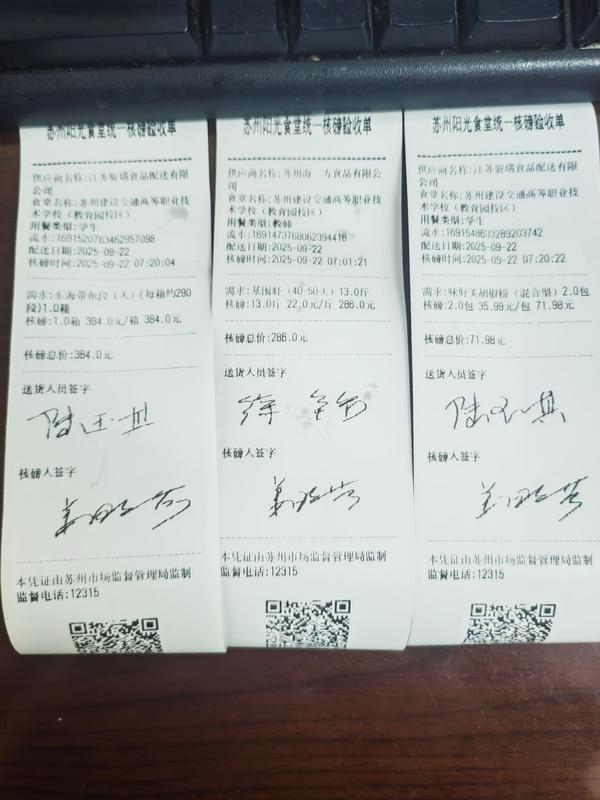 苏州阳光食堂统一核磅验收单
供应商名称:江苏骏瑞食品配送有限
公司
食堂名称:苏州建设交通高等职业技
术学校（教育园校区）
用餐类型:学生
流水:1691520763462957098
配送日期:2025-09-22
核磅时间:2025-09-22 07:20:04
需求:东海带鱼段（大）(每箱约290
段)1.0箱
核磅:1.0箱 384.0元/箱 384.0元
核磅总价:384.0元
送货人员签字
核磅人签字
本凭证由苏州市场监督管理局监制
监督电话:12315
苏州阳光食堂统一核磅验收单
供应商名称:苏州海 方食品有限公
司
食堂名称:苏州建设交通高等职业技
术学校（教育园校区）
用餐类型:教师
流水:1691473768062394416
配送日期:2025-09-22
核磅时间:2025-09-22 07:01:21
需求:基围虾（40-50头）13.0斤
核磅:13.0斤 22.0元/斤 286.0元
核磅总价:286.0元
送货人员签字
核磅人签字
本凭证由苏州市场监督管理局监制
监督电话:12315
苏州阳光食堂统一核磅验收单
供应商名称:江苏骏瑞食品配送有限
公司
食堂名称:苏州建设交通高等职业技
术学校（教育园校区）
用餐类型:学生
流水:1691548633289203742
配送日期:2025-09-22
核磅时间:2025-09-22 07:20:22
需求:味好美胡椒粉（混合型）2.0包
核磅:2.0包 35.99元/包 71.98元
核磅总价:71.98元
送货人员签字
核磅人签字
本凭证由苏州市场监督管理局监制
监督电话:12315